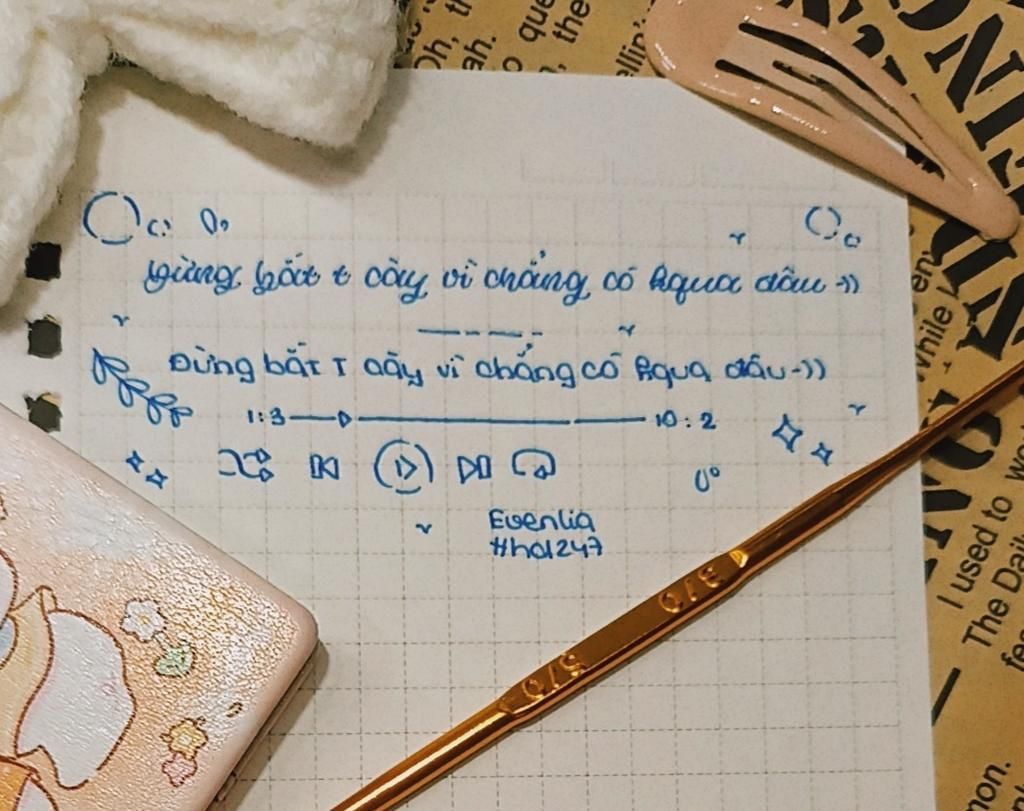 Oh, th
ah.
o que
the
ellin
Đừng bắt t cày vì chẳng có Aqua đâu -))
Đừng bắt T cày vì chẳng có Aqua đâu -))
1:3
10:2
Evenlia
#hd1247
3/0
5/0
en
while I
I used to wo
The Daily
fe
non.